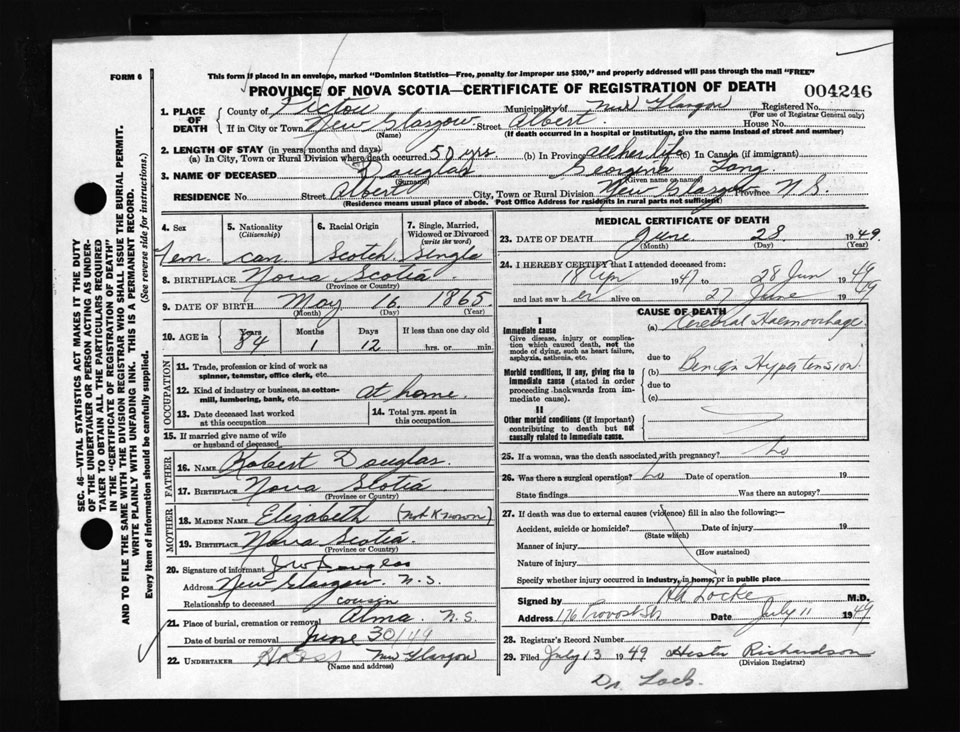 FORM 6
This form if placed in an envelope, marked "Dominion Statistics—Free, penalty for improper use $300," and properly addressed will pass through the mail "FREE"
PROVINCE OF NOVA SCOTIA—CERTIFICATE OF REGISTRATION OF DEATH
004246
1. PLACE OF DEATH
County of Pictou Municipality of New Glasgow Registered No.
(For use of Registrar General only)
If in City or Town New Glasgow Street Albert House No.
(Name) (If death occurred in a hospital or institution, give the name instead of street and number)
2. LENGTH OF STAY (in years, months and days)
(a) In City, Town or Rural Division where death occurred 50 yrs. (b) In Province all her life (c) In Canada (if immigrant)
3. NAME OF DECEASED Douglas Georgina Lang
(Surname) (Given name or names)
RESIDENCE No. Street Albert City, Town or Rural Division New Glasgow Province N.S.
(Residence means usual place of abode. Post Office Address for residents in rural parts not sufficient)
4. Sex
Fem.
5. Nationality
(Citizenship)
Can.
6. Racial Origin
Scotch
7. Single, Married, Widowed or Divorced
(write the word)
Single
8. BIRTHPLACE Nova Scotia
(Province or Country)
9. DATE OF BIRTH May 16 1865
(Month) (Day) (Year)
10. AGE in
Years Months Days If less than one day old
84 1 12 hrs. or min.
OCCUPATION
11. Trade, profession or kind of work as spinner, teamster, office clerk, etc.
12. Kind of industry or business, as cotton-mill, lumbering, bank, etc. at home.
13. Date deceased last worked at this occupation
14. Total yrs. spent in this occupation
15. If married give name of wife or husband of deceased
FATHER
16. NAME Robert Douglas.
17. BIRTHPLACE Nova Scotia
(Province or Country)
MOTHER
18. MAIDEN NAME Elizabeth (not Known)
19. BIRTHPLACE Nova Scotia.
(Province or Country)
20. Signature of informant J W Douglas
Address New Glasgow N.S.
Relationship to deceased cousin
21. Place of burial, cremation or removal Alma. N.S.
Date of burial or removal June 30/49
22. UNDERTAKER New Glasgow
(Name and address)
MEDICAL CERTIFICATE OF DEATH
23. DATE OF DEATH June 28 1949.
(Month) (Day) (Year)
24. I HEREBY CERTIFY that I attended deceased from:
18 Apr 1947 to 28 Jun 1949
and last saw her alive on 27 June 1949
CAUSE OF DEATH
I
Immediate cause
Give disease, injury or complication which caused death, not the mode of dying, such as heart failure, asphyxia, asthenia, etc.
(a) Cerebral Haemorrhage
due to
Morbid conditions, if any, giving rise to immediate cause (stated in order proceeding backwards from immediate cause).
(b) Benign Hypertension
due to
(c)
II
Other morbid conditions (if important) contributing to death but not causally related to immediate cause.
25. If a woman, was the death associated with pregnancy? No
26. Was there a surgical operation? No Date of operation 19
State findings Was there an autopsy?
27. If death was due to external causes (violence) fill in also the following:—
Accident, suicide or homicide? Date of injury 19
(State which)
Manner of injury
(How sustained)
Nature of injury
Specify whether injury occurred in industry, in home, or in public place
Signed by Locke M.D.
Address 176 Provost St. Date July 11 1949
28. Registrar's Record Number
29. Filed July 13 1949 Hester Richardson
(Division Registrar)
Dr. Lock.
SEC. 46—VITAL STATISTICS ACT MAKES IT THE DUTY
OF THE UNDERTAKER OR PERSON ACTING AS UNDER-
TAKER TO OBTAIN ALL THE PARTICULARS REQUIRED
IN THE "CERTIFICATE OF REGISTRATION OF DEATH"
AND TO FILE THE SAME WITH THE DIVISION REGISTRAR WHO SHALL ISSUE THE BURIAL PERMIT.
WRITE PLAINLY WITH UNFADING INK. THIS IS A PERMANENT RECORD.
Every item of information should be carefully supplied. (See reverse side for instructions.)